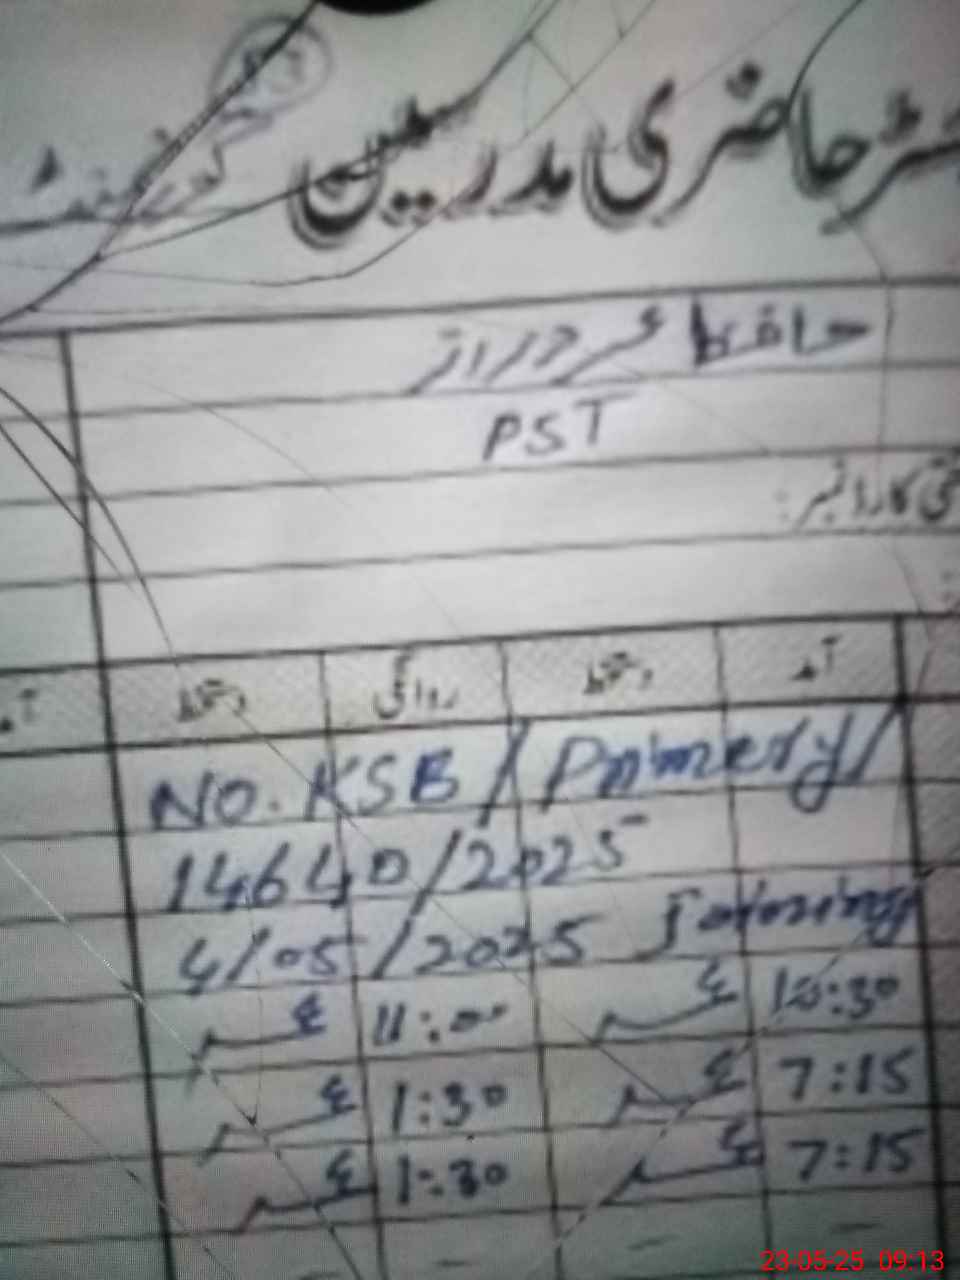 رجسٹر حاضری مدرسین گورنمنٹ
حافظ عمر دراز
PST
شناختی کارڈ نمبر:
آمد دستخط روانگی دستخط آمد
NO. KSB / Primery/
14640/2025
4/05/2025 Joining
10:30 عمر 11:00 عمر
7:15 عمر 1:30 عمر
7:15 عمر 1:30 عمر
23-05-25 09:13